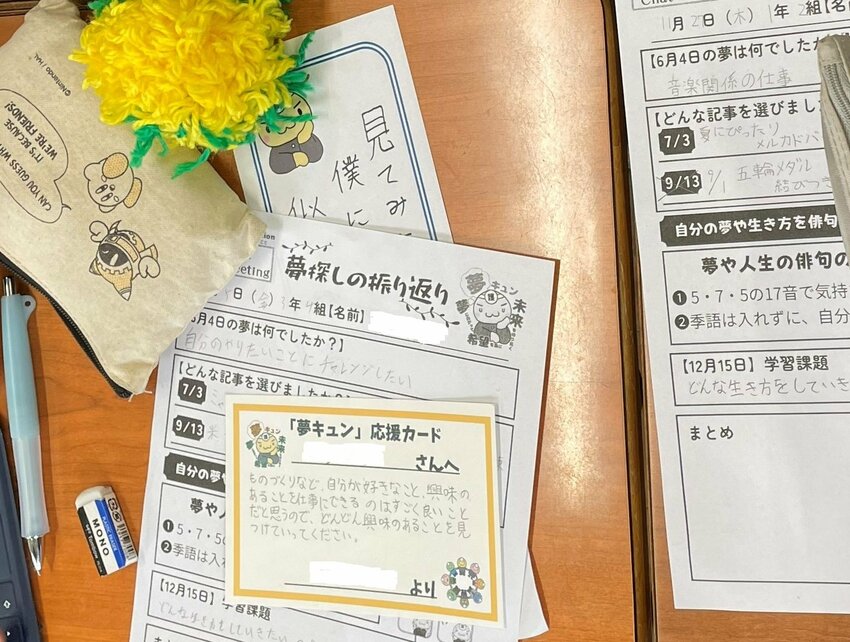 ©Nintendo / HAL
CAN YOU GUESS WHY?
IT'S BECAUSE
WE'RE FRIENDS!
見てみ
僕に
eeting
夢探しの振り返り
夢キュン
未来
希望
3年 組【名前】
6月4日の夢は何でしたか?】
自分のやりたいことにチャレンジしたい
【どんな記事を選びましたか?
7/3
9/13
自分の夢や
夢や人
❶5・7・5の
❷季語は入れず
【12月15日】学習課題
どんな生き方をしていきたい
まとめ
「夢キュン」応援カード
さんへ
ものづくりなど、自分が好きなこと、興味の
あることを仕事にできるのはすごく良いこと
だと思うので、どんどん興味のあることを見
つけていってください。
より
MONO
11月2日(木)1年2組【名前
【6月4日の夢は何でしたか
音楽関係の仕事
【どんな記事を選びました
7/3 夏にぴったり
メルカドバ
9/13 9/1 五輪メダル
結びつき
自分の夢や生き方を俳句
夢や人生の俳句の
❶5・7・5の17音で気持
❷季語は入れずに、自分
【12月15日】学習課題
どんな生き方をしていき
まとめ